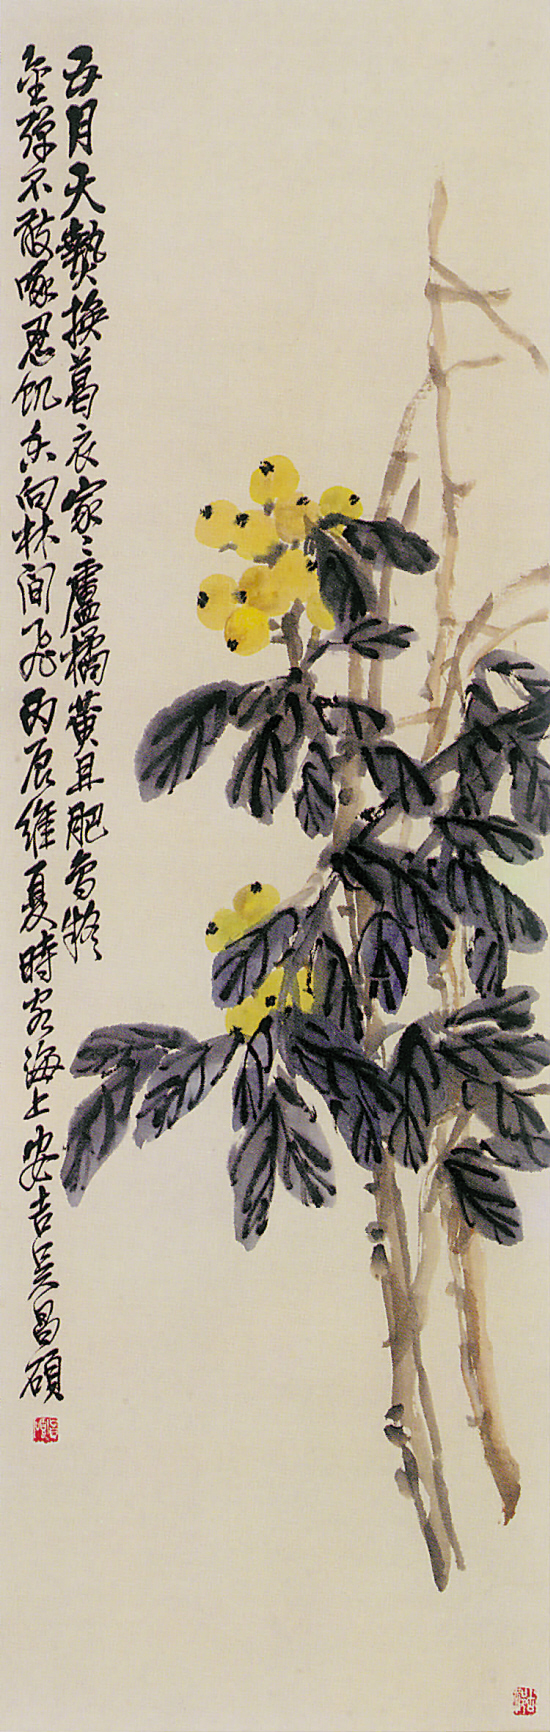 五月天熱換葛衣家〻盧橘黃且肥鳥疑
金彈不敢啄忍飢空向林間飛丙辰維夏時客海上安吉吳昌碩